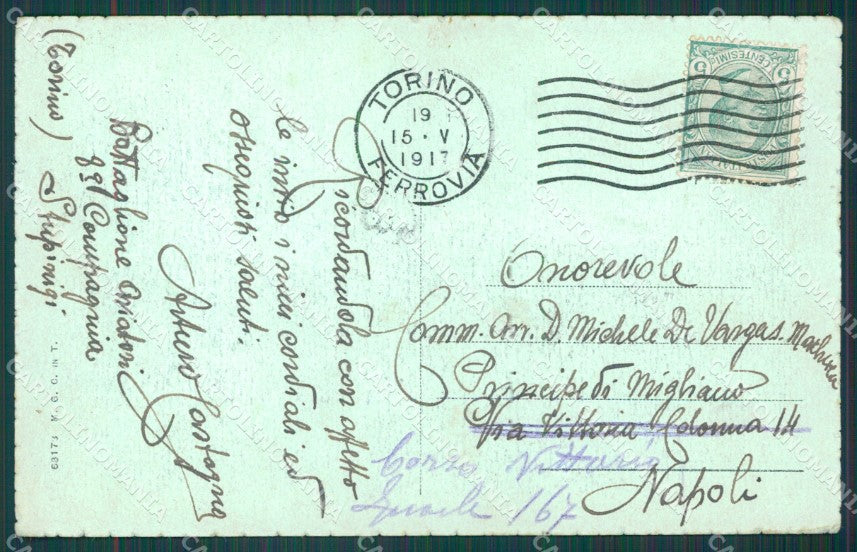 TORINO
19
15 · V
1917
FERROVIA
CENTESIMI
Ricordandola con affetto
Le invio i miei cordiali ed
ossequiosi saluti.
Arturo Castagna
Battaglione Aviatori
Compagnia
Stupinigi
(Torino)
Onorevole
Comm. Avv. D. Michele De Vargas Machuca
Principe di Migliano
Via Vittoria Colonna 14
Corso Vittorio
Emanle 167
Napoli
63173 M. C. C. IN T.
CARTOLINOMANIA